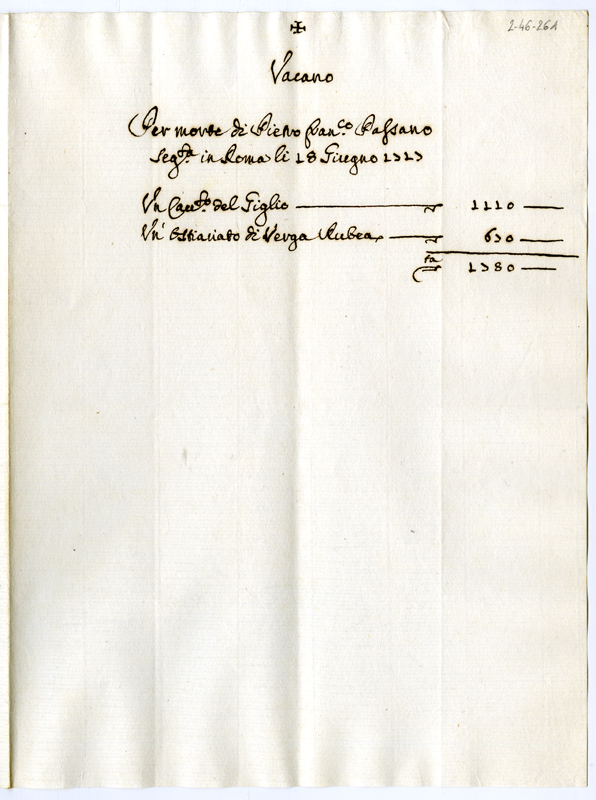 ✠
2-46-261
Vacano
Per morte di Pietro Fran.co Passano
seg.ta in Roma li 18 Giugno 1717
Un Cau.to del Giglio — 1110 —
Un' Ostiariato di Verga Rubea, — 670 —
1780 —